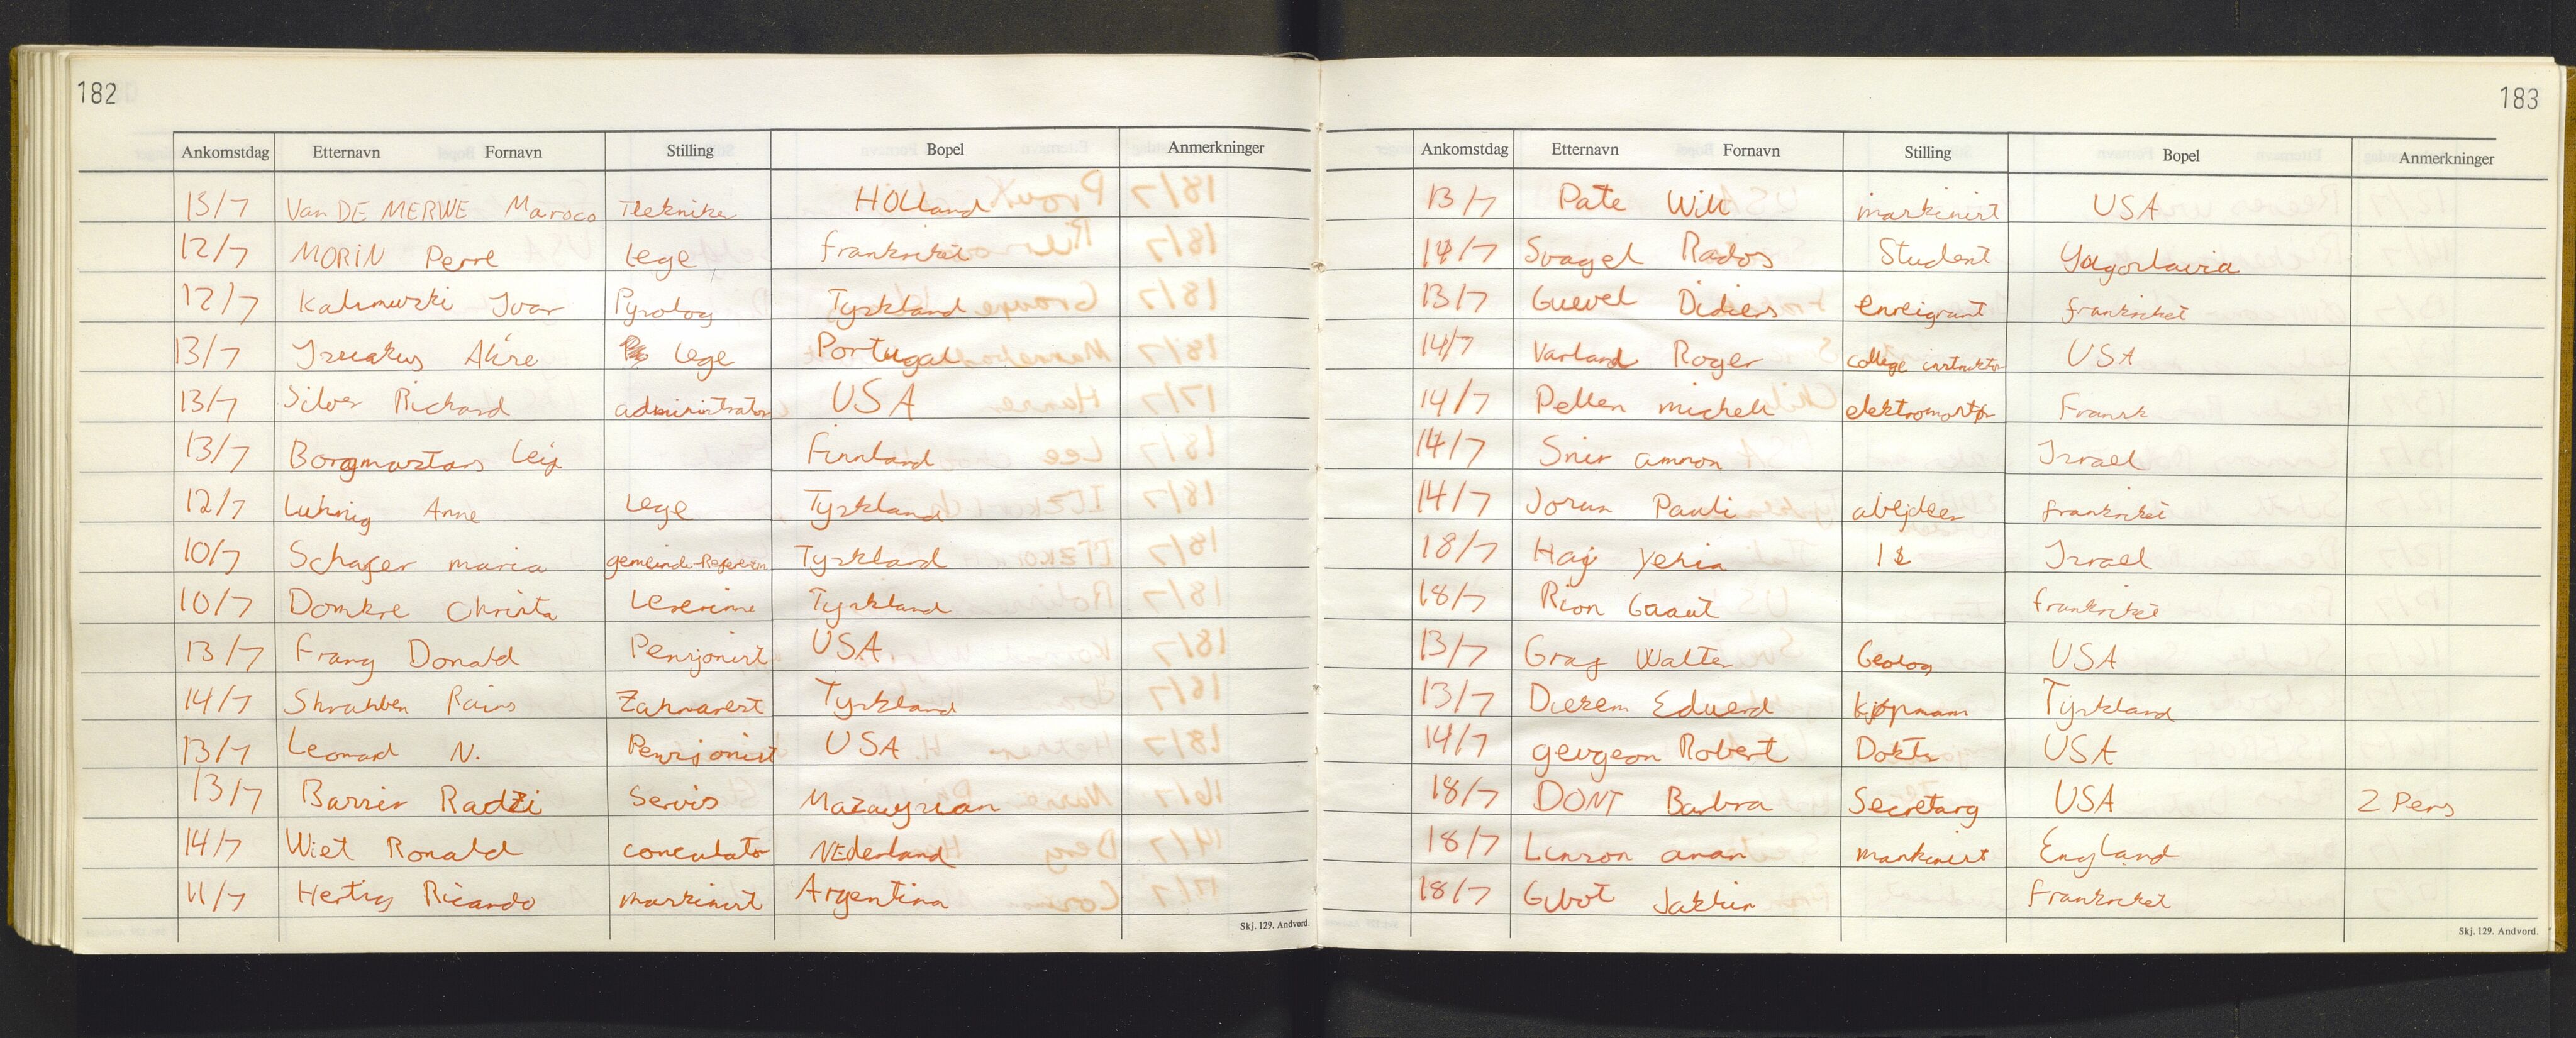 182
Ankomstdag Etternavn Fornavn Stilling Bopel Anmerkninger
13/7 Van DE MERWE Maroco Tlekniker HOLLand
12/7 MORIN Perre Lege frankriket
12/7 Kalimurski Ivar Pyrolog Tyskland
13/7 Akire Lege Portugal
13/7 Silver Richard administrator USA
13/7 Borgmastars Leif Finnland
12/7 Luhnig Anne Lege Tyskland
10/7 Schafer maria gemeinde-Referentin Tyskland
10/7 Domkre Christa Lererinne Tyskland
13/7 Frang Donald Pensjonist USA
14/7 Rains Zahnarest Tyskland
13/7 Leonard N. Pensjonist USA
13/7 Barrier Radzi Servis
14/7 Wiet Ronald conculator NEderland
11/7 Hertig Ricardo maskinist Argentina
Skj. 129. Andvord.
183
Ankomstdag Etternavn Fornavn Stilling Bopel Anmerkninger
13/7 Pate Will maskinist USA
14/7 Svagel Rados Student Yogoslavia
13/7 Guevel Didiers enseignant frankriket
14/7 Varland Roger college instruktør USA
14/7 Pellen michell elektromontør Fransk
14/7 Snir amnon Israel
14/7 Jorun Pauli frankriket
18/7 Haj Yehia Israel
18/7 Rion Gaaut frankriket
13/7 Gray Walter Geolog USA
13/7 Dierem Eduerd kjøpmann Tyskland
14/7 gevgeon Robert Doktr USA
18/7 DONT Barbra Secretary USA 2 Pers
18/7 Linson anan maskinist England
18/7 Gibot Jakkin Frankriket
Skj. 129. Andvord.